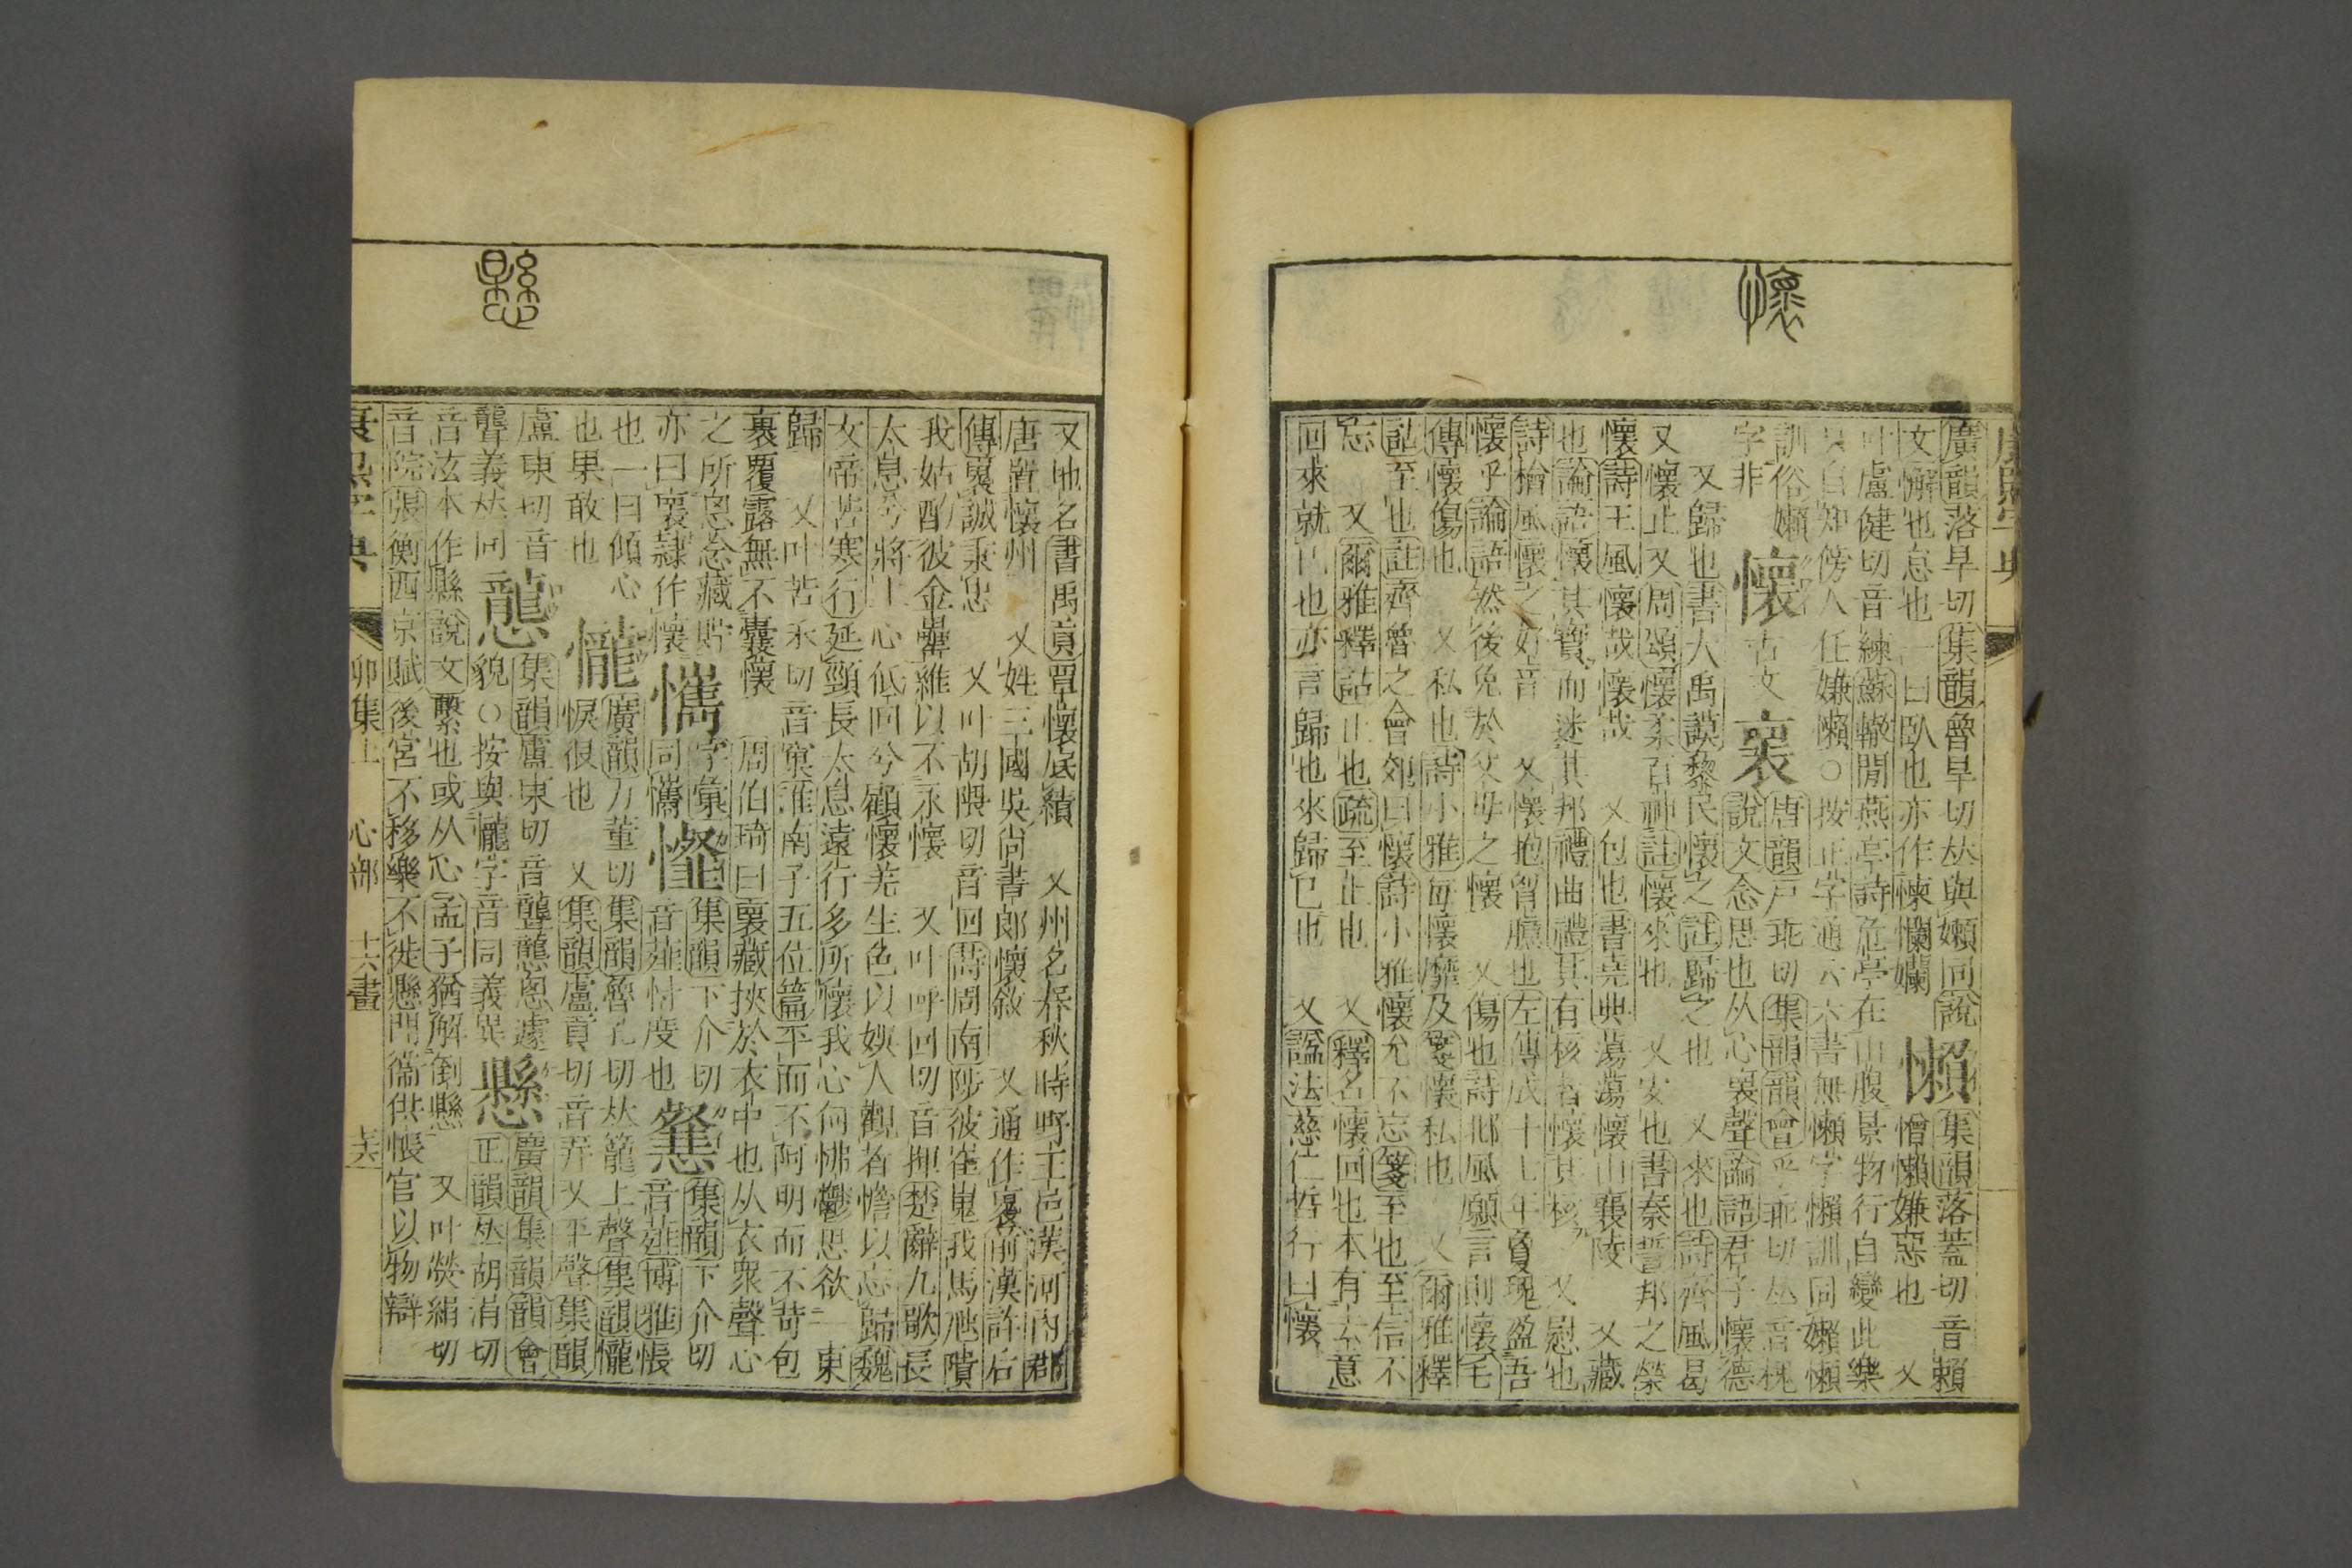 懷
廣韻落旱切集韻魯旱切𠀤與嬾同說
文懈也怠也一曰臥也亦作㦨爛孄
懶
集韻落蓋切音賴
憎懶嫌惡也 又
叶盧健切音練蘇轍閒燕亭詩危亭在山腹景物行自變此樂
只自知傍人任嫌懶○按正字通云六書無懶字懶訓同嬾懶
訓俗嬾
字非
懷
古文
褱
唐韻戸乖切集韻韻會乎乖切𠀤音槐
說文念思也从心褱聲論語君子懷德
又歸也書大禹謨黎民懷之註歸之也 又來也詩齊風曷
又懷止又周頌懷柔百神註懷來也 又安也書秦誓邦之榮
懷詩王風懷哉懷哉 又包也書堯典蕩蕩懷山襄陵 又藏
也論語懷其寶而迷其邦禮曲禮其有核者懷其核 又慰也
詩檜風懷之好音 又懷抱胷臆也左傳成十七年瓊瑰盈吾
懷乎論語然後免於父母之懷 又傷也詩邶風願言則懷毛
傳懷傷也 又私也詩小雅每懷靡及箋懷私也 又爾雅釋
詁至也註齊魯之會郊曰懷詩小雅懷允不忘箋至也至信不
忘 又爾雅釋詁止也疏至止也 又釋名懷回也本有去意
回來就已也亦言歸也來歸已也 又諡法慈仁哲行曰懷
康熙字典
縣
又地名書禹貢覃懷底績 又州名春秋時野王邑漢河內郡
唐置懷州 又姓三國吳尚書郞懷敘 又通作褱前漢許后
傳褱誠秉忠 又叶胡隈切音回詩周南陟彼崔嵬我馬虺隤
我姑酌彼金罍維以不永懷 又叶呼回切音揮楚辭九歌長
太息兮將上心低回兮顧懷羌生色以娛人觀者憺以忘歸魏
文帝苦寒行延頸長太息遠行多所懷我心何怫鬱思欲一東
歸 又叶苦禾切音窠淮南子五位篇平而不阿明而不苛包
裹覆露無不囊懷 周伯琦曰褱藏挾於衣中也从衣眔聲心
之所思念藏貯
亦曰褱隷作懷
懏
字彙
同㦢
𢤧
集韻下介切
音薤忮度也
𢥏
集韻下介切
音薤博雅悵
也一曰傾心
也果敢也
㦕
廣韻力董切集韻魯孔切𠀤籠上聲集韻㦕
悷很也 又集韻盧貢切音弄又平聲集韻
盧東切音
聾義𠀤同
𢤱
集韻盧東切音聾𢤱悤遽
貌○按與㦕字音同義異
懸
廣韻集韻韻會
正韻𠀤胡涓切
音泫本作縣說文繫也或从心孟子猶解倒懸 又叶熒絹切
音院張衡西京賦後宮不移樂不徙懸門衞供帳官以物辯
康熙字典 卯集上 心部 十六畫